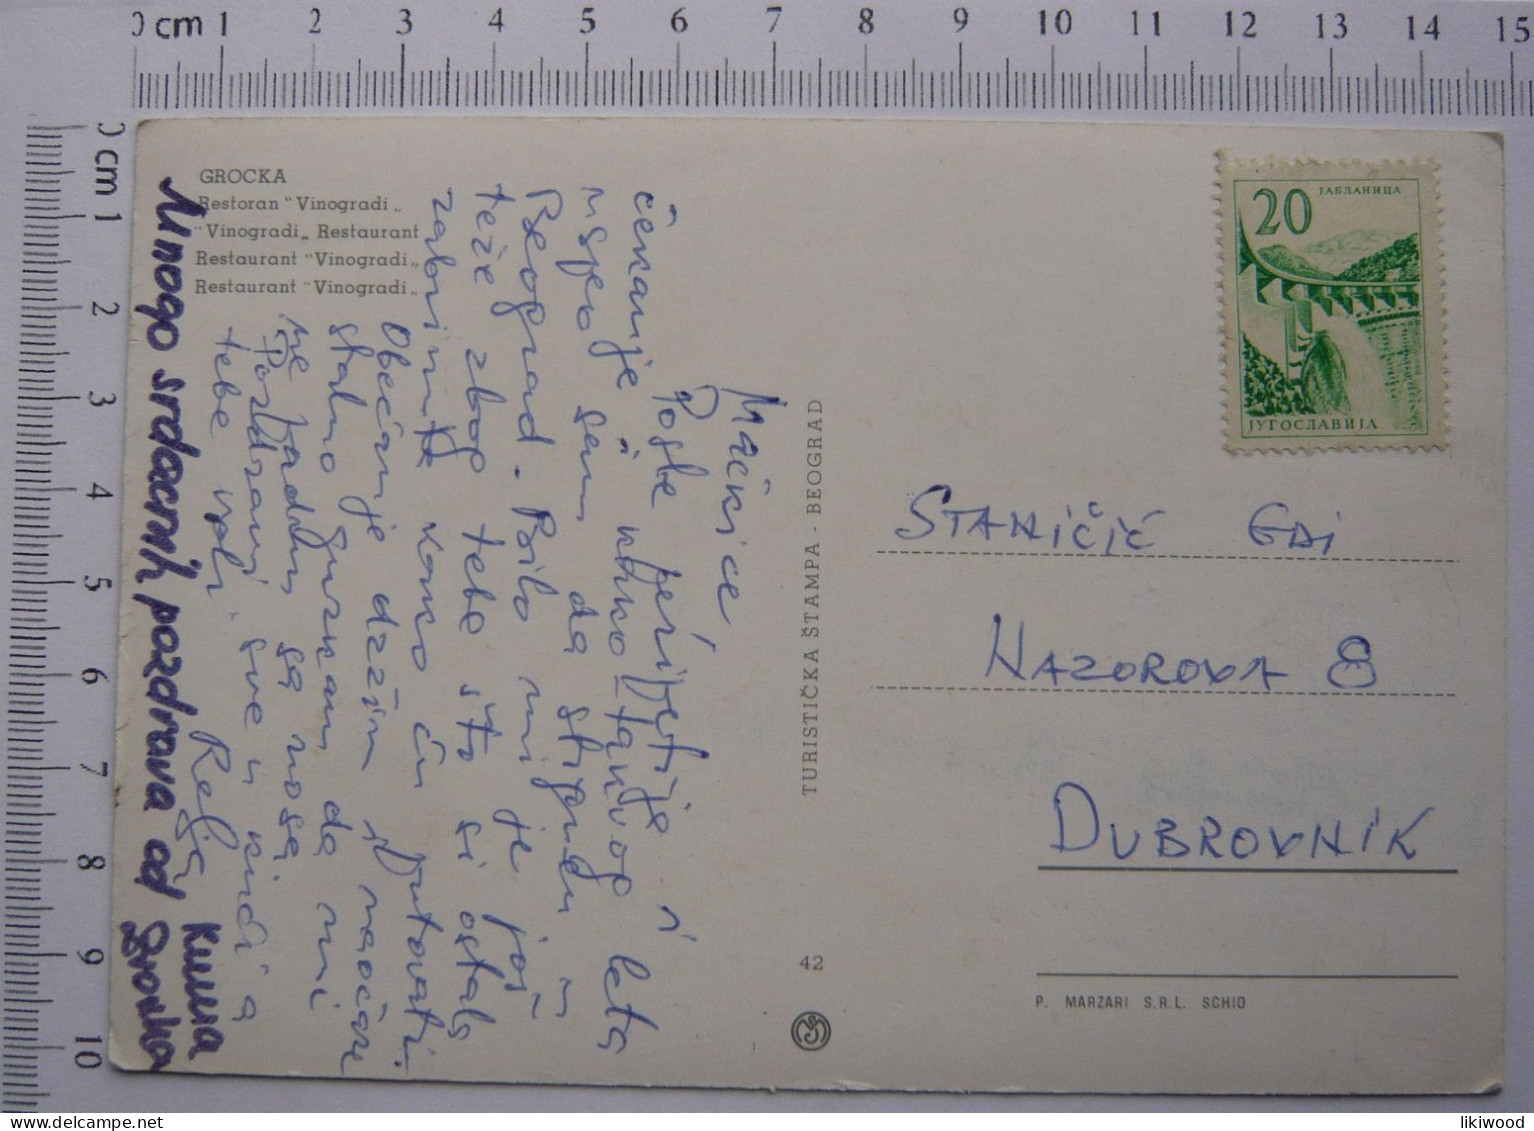 0 cm 1 2 3 4 5 6 7 8 9 10 11 12 13 14 15
0 cm 1 2 3 4 5 6 7 8 9 10
GROCKA
Restoran "Vinogradi„
"Vinogradi„ Restaurant
Restaurant "Vinogradi„
Restaurant "Vinogradi„
Mačkice,
Posle peripetije i
čekanje
uspeo sam da stignem u
Beograd. Bilo mi je još
teže zbog tebe što si ostala
kako ću putovati.
Obećanje držim i naočare
stalno guram da mi
ne padaju sa nosa
Pozdravi sve u kući a
tebe voli Relja
Mnogo srdačnih pozdrava od
Kuma
Zvonka
TURISTIČKA ŠTAMPA - BEOGRAD
42
20
ЈАБЛАНИЦА
ЈУГОСЛАВИЈА
STANIČIĆ EDI
NAZOROVA 8
DUBROVNIK
P. MARZARI S.R.L. SCHIO
likiwood
www.delcampe.net